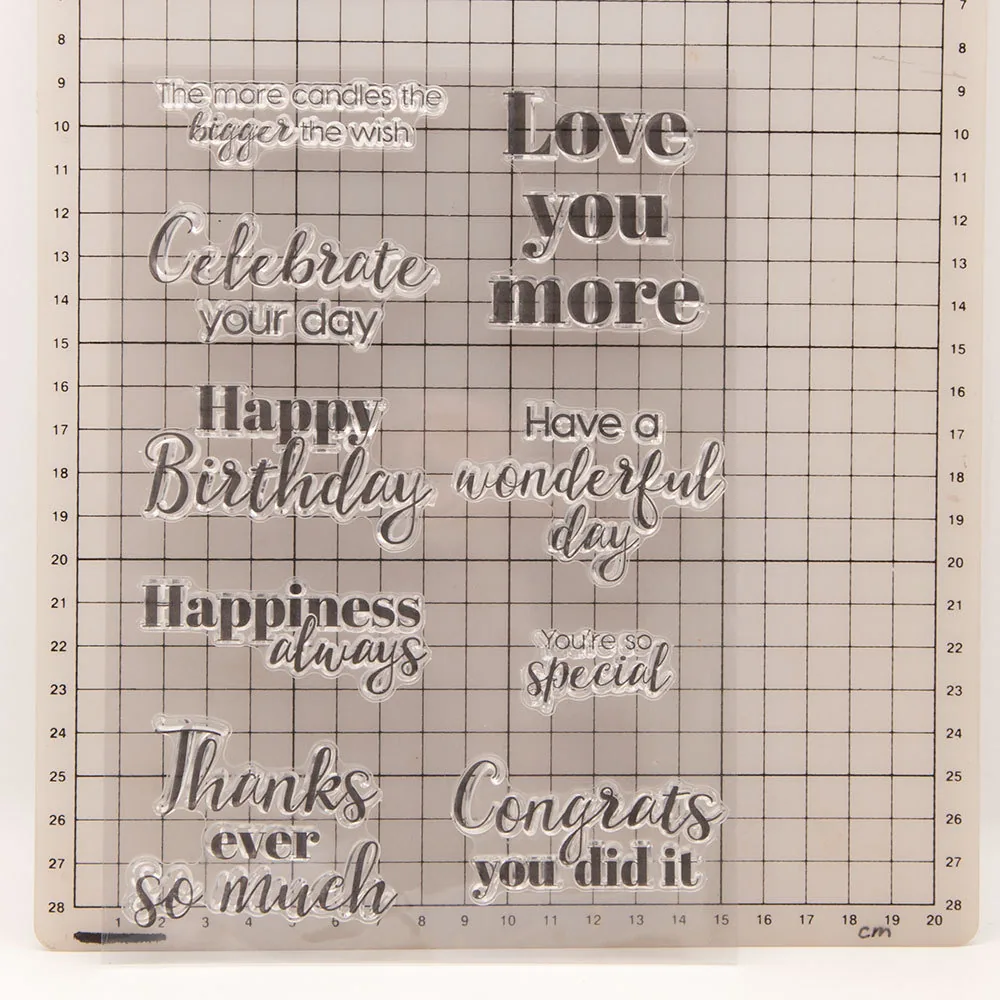 The more candles the
bigger the wish
Celebrate
your day
Happy
Birthday
Happiness
always
Thanks
ever
so much
Love
you
more
Have a
wonderful
day
You're so
special
Congrats
you did it
8
9
10
11
12
13
14
15
16
17
18
19
20
21
22
23
24
25
26
27
28
7
8
9
10
11
12
13
14
15
16
17
18
19
20
21
22
23
24
25
26
27
28
1 2 3 4 5 6 7 8 9 10 11 12 13 14 15 16 17 18 19 20
cm